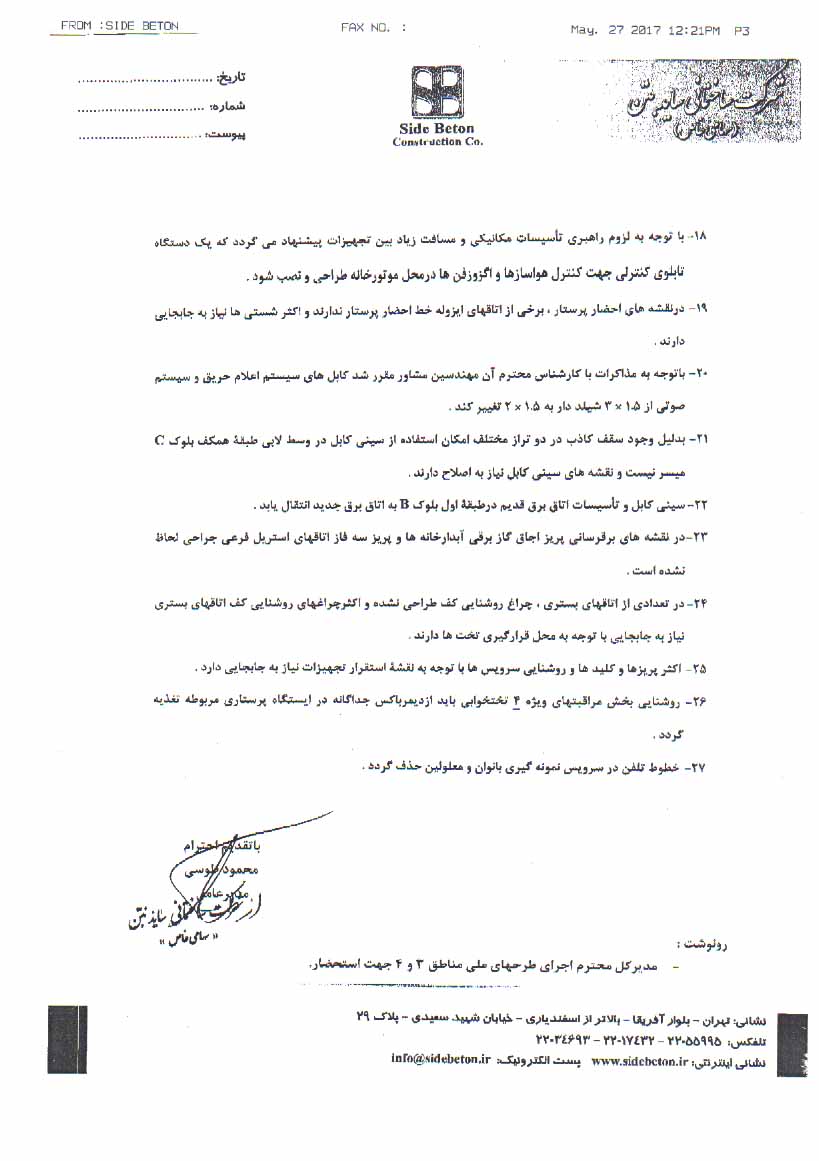 FROM :SIDE BETON FAX NO. : May. 27 2017 12:21PM P3
شرکت ساختمانی ساید بتن
(سهامی خاص)
SB
Side Beton
Construction Co.
تاریخ: ..................................
شماره: ................................
پیوست: ...............................
۱۸- با توجه به لزوم راهبری تأسیسات مکانیکی و مسافت زیاد بین تجهیزات پیشنهاد می گردد که یک دستگاه
تابلوی کنترلی جهت کنترل هواسازها و اگزوزفن ها درمحل موتورخانه طراحی و نصب شود .
۱۹- درنقشه های احضار پرستار ، برخی از اتاقهای ایزوله خط احضار پرستار ندارند و اکثر شستی ها نیاز به جابجایی
دارند .
۲۰- باتوجه به مذاکرات با کارشناس محترم آن مهندسین مشاور مقرر شد کابل های سیستم اعلام حریق و سیستم
صوتی از ۱.۵ × ۳ شیلد دار به ۱.۵ × ۲ تغییر کند .
۲۱- بدلیل وجود سقف کاذب در دو تراز مختلف امکان استفاده از سینی کابل در وسط لابی طبقۀ همکف بلوک C
میسر نیست و نقشه های سینی کابل نیاز به اصلاح دارند .
۲۲- سینی کابل و تأسیسات اتاق برق قدیم درطبقۀ اول بلوک B به اتاق برق جدید انتقال یابد .
۲۳-در نقشه های برقرسانی پریز اجاق گاز برقی آبدارخانه ها و پریز سه فاز اتاقهای استریل فرعی جراحی لحاظ
نشده است .
۲۴- در تعدادی از اتاقهای بستری ، چراغ روشنایی کف طراحی نشده و اکثرچراغهای روشنایی کف اتاقهای بستری
نیاز به جابجایی با توجه به محل قرارگیری تخت ها دارند .
۲۵- اکثر پریزها و کلید ها و روشنایی سرویس ها با توجه به نقشۀ استقرار تجهیزات نیاز به جابجایی دارد .
۲۶- روشنایی بخش مراقبتهای ویژه ۴ تختخوابی باید ازدیمرباکس جداگانه در ایستگاه پرستاری مربوطه تغذیه
گردد .
۲۷- خطوط تلفن در سرویس نمونه گیری بانوان و معلولین حذف گردد .
باتقدیم احترام
محمود طوسی
مدیرعامل
شرکت ساختمانی ساید بتن
« سهامی خاص »
رونوشت :
- مدیرکل محترم اجرای طرحهای ملی مناطق ۳ و ۴ جهت استحضار.
نشانی: تهران – بلوار آفریقا – بالاتر از اسفندیاری – خیابان شهید سعیدی – پلاک ۲۹
تلفکس: ۲۲۰۵۵۹۹۵ – ۲۲۰۱۷۴۳۲ – ۲۲۰۳۴۶۹۳
نشانی اینترنتی: www.sidebeton.ir پست الکترونیک: info@sidebeton.ir